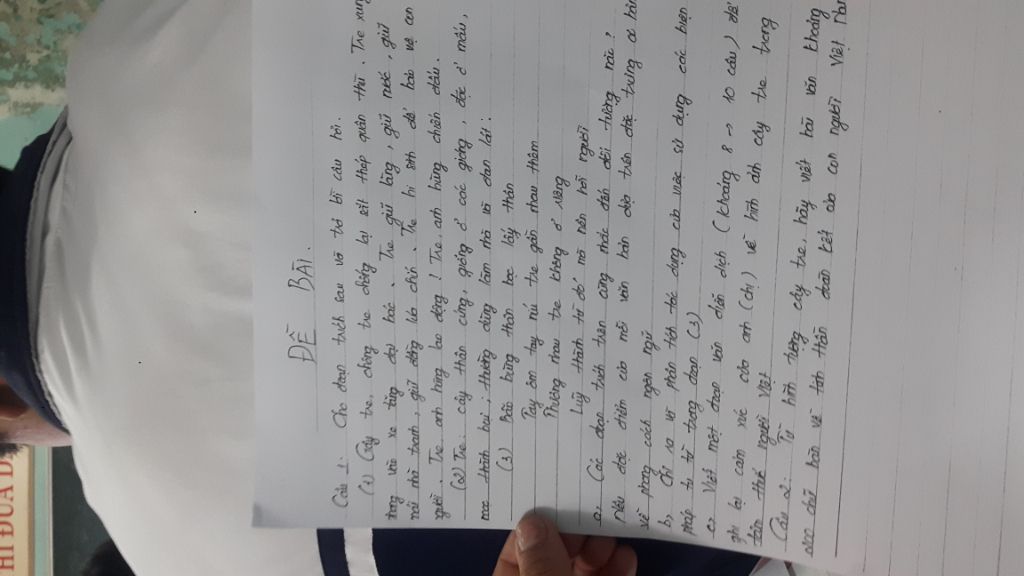 ĐỀ BÀI.
Câu 1: Cho đoạn trích sau và trả lời câu hỏi.
(1) Gậy tre, chông tre chống lại sắt thép quân thù. Tre xung
phong vào xe tăng đại bác. Tre giữ làng, giữ nước, giữ
mái nhà tranh, giữ đồng lúa chín. Tre hi sinh để bảo vệ con
người. Tre, anh hùng lao động! Tre, anh hùng chiến đấu.
(2) Tre: cây thân cứng, gióng ở các gióng, đặc ở mấu,
mọc thành bụi; thường dùng làm nhà và đan lát:
(3) Bão bùng thân bọc lấy thân
Tay ôm tay níu tre gần nhau thêm
Thương nhau tre không ở riêng
Luỹ thành từ đó mà nên hỡi người
a, Các đoạn trích trên cùng nhắc đến đối tượng nào?
Nêu đặc điểm của mỗi văn bản dựa trên đặc trưng cơ bản
về phong cách ngôn ngữ
b, Chỉ ra và phân tích tác dụng của việc sử dụng các biện
pháp tu từ trong đoạn (3)
c, Viết một đoạn văn diễn dịch (khoảng 8 -> 10 câu) để
ghi lại cảm xúc của anh (chị) về hình ảnh cây tre trong
tâm thế người Việt
Câu 2: Từ hình tượng cây tre, hãy viết bài văn khoảng
về tinh thần đoàn kết của con người Việt Nam
HI ĐUA D